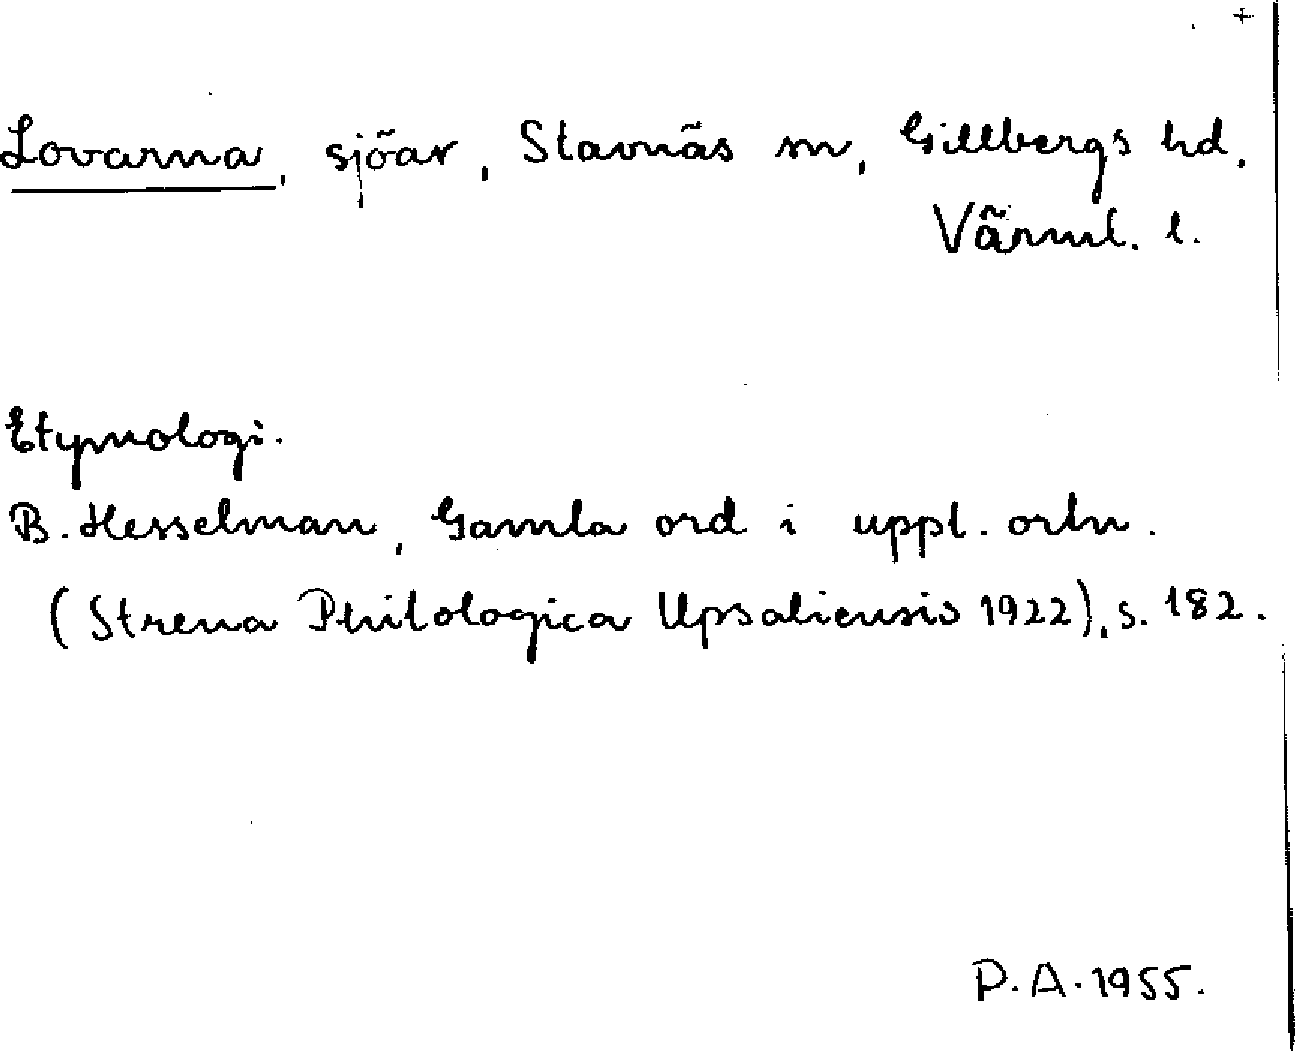 +
Lovarna, sjöar, Stavnäs sn, Gillbergs hd,
Värml. l.
Etymologi.
B. Hesselman, Gamla ord i uppl. ortn.
(Strena Philologica Upsaliensis 1922), s. 182.
P.A. 1955.